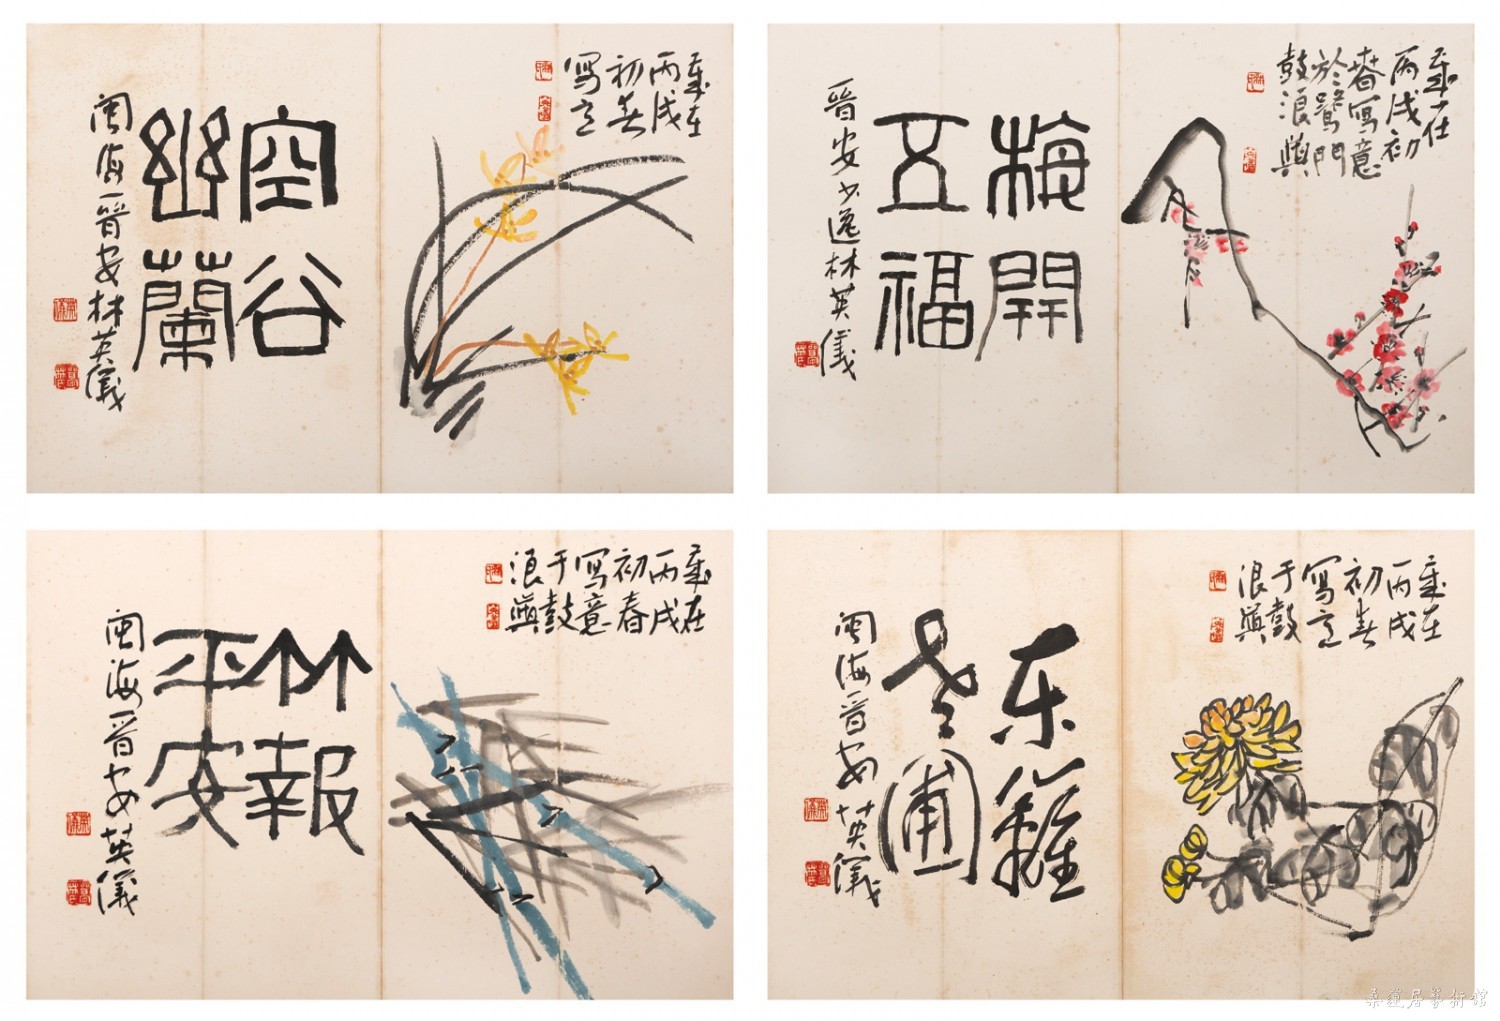 歲在
丙戌
初春
写意
空谷
幽蘭
閩海晉安林英儀
歲在
丙戌初
春写意
於鷺門
鼓浪嶼
梅開
五福
晉安少逸林英儀
歲在
丙戌
初春
写意
于鼓
浪嶼
竹報
平安
閩海晉安英儀
歲在
丙戌
初春
写意
于鼓
浪嶼
东籬
老圃
閩海晉安英儀
桑蓮居藝術館